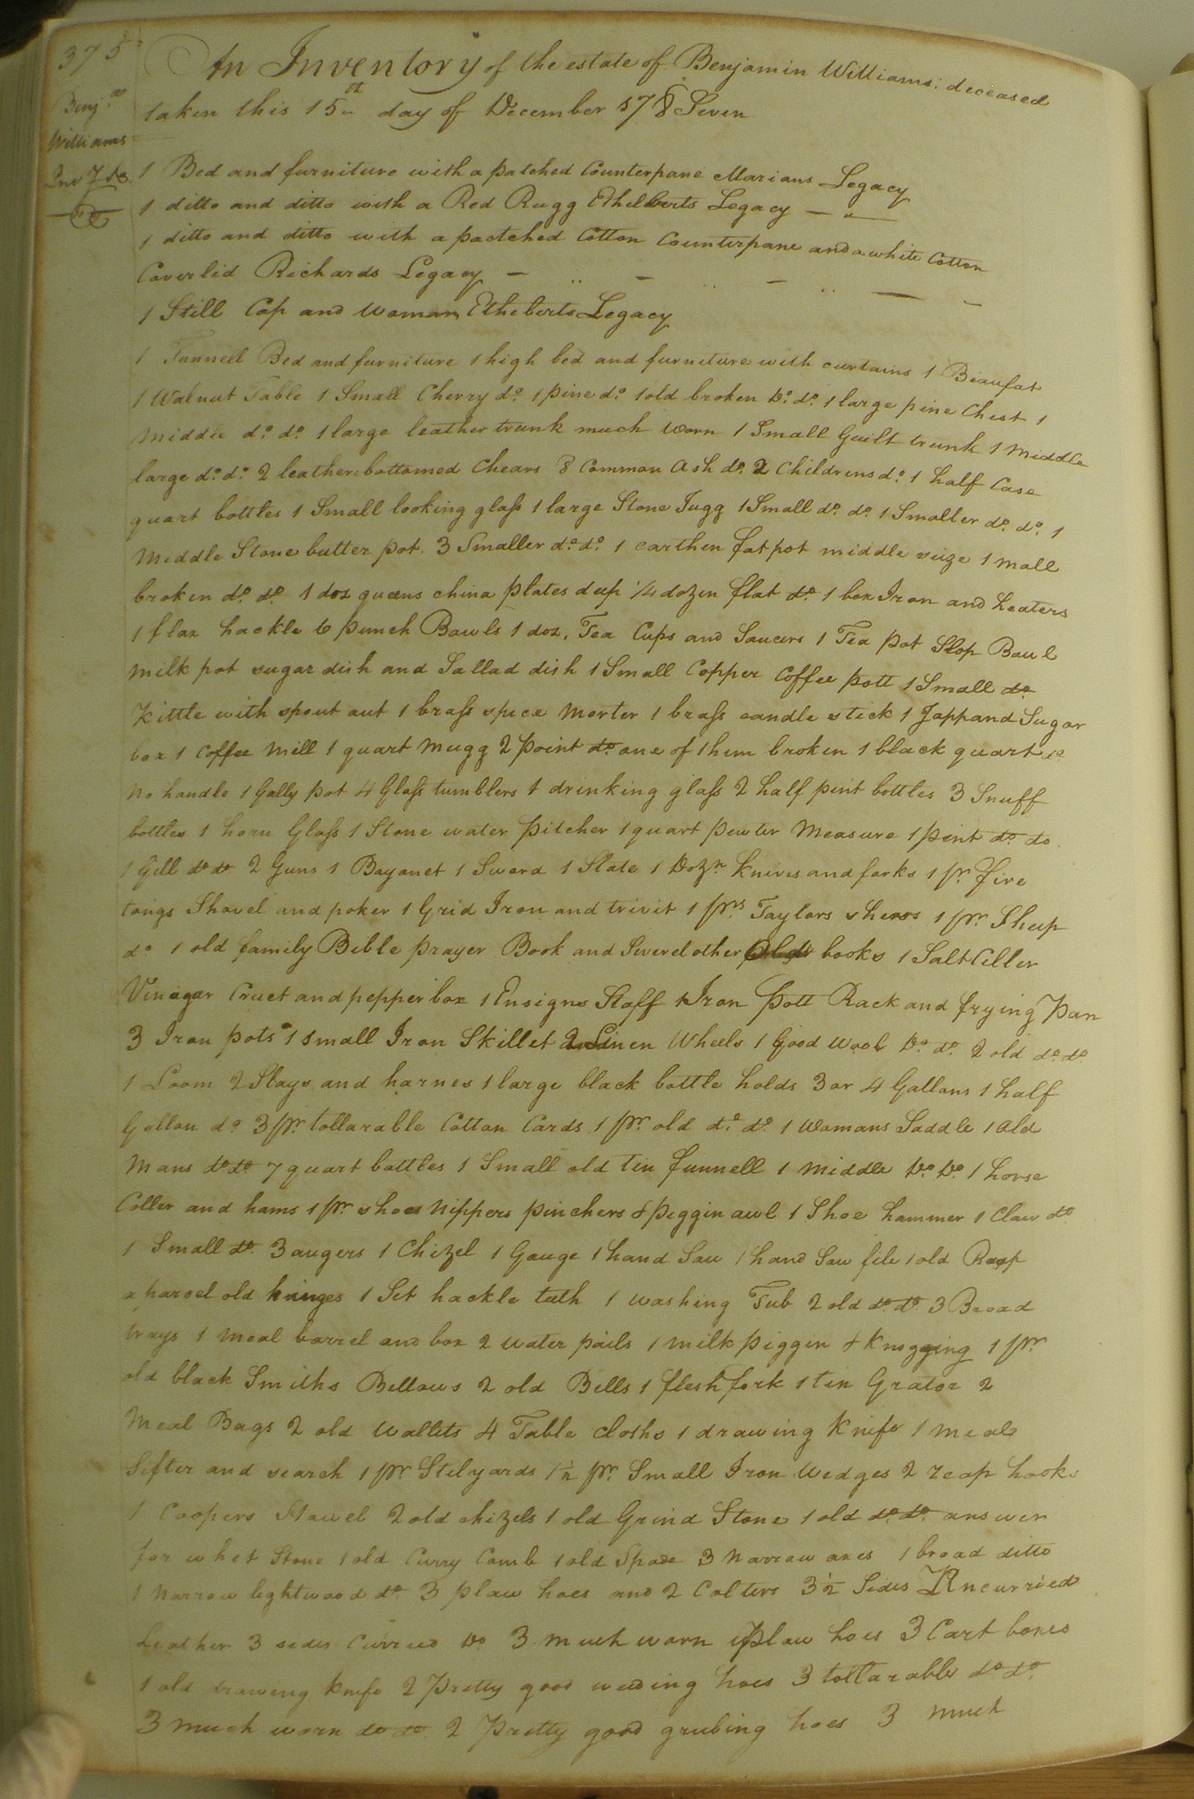 375
Benj.n
Williams
Inv.ty &c
An Inventory of the estate of Benjamin Williams: deceased
taken this 15th day of December 178 Seven
1 Bed and furniture with a patched Counterpane Marians Legacy
1 ditto and ditto with a Red Rugg Ethelberts Legacy
1 ditto and ditto with a pactched Cotton Counterpane and a white Cotton
Coverlid Richards Legacy
1 Still Cap and Woman Ethelberts Legacy
1 Tunneel Bed and furniture 1 high bed and furniture with curtains 1 Beaufat
1 Walnut Table 1 Small Cherry do. 1 pine do. 1 old broken Do. do. 1 large pine Chest 1
Middle do. do. 1 large leather trunk much worn 1 Small Guilt trunk 1 Middle
large do. do. 2 leather bottomed Chears 8 Common Ash do. 2 Childrens do. 1 half Case
quart bottles 1 Small looking glass 1 large Stone Jugg 1 Small do. do. 1 Smaller do. do. 1
Meddle Stone butter pot. 3 Smaller do. do. 1 earthen fat pot middle seize 1 mall
broken do. do. 1 doz queens china plates deep 1/4 dozen flat do. 1 box Iron and heaters
1 flax hackle 6 punch Bawls 1 doz. Tea Cups and Saucers 1 Tea pot Slop Baul
milk pot sugar dish and Sallad dish 1 Small Copper Coffee pott 1 Small do
Kittle with spout out 1 brass spice morter 1 brass candle stick 1 Jappand Sugar
box 1 Coffee Mill 1 quart Mugg 2 point do one of them broken 1 black quart do
No handle 1 Gally pot 4 Glass tumblers 1 drinking glass 2 half pint bottles 3 Snuff
bottles 1 horn Glass 1 Stone water pitcher 1 quart pewter Measure 1 pint do do.
1 Gill do do 2 Guns 1 Bayonet 1 Sword 1 Slate 1 Dozn. Knives and forks 1 pr. fire
tongs Shovel and poker 1 Grid Iron and trivit 1 prs Taylors shears 1 pr. Sheep
do 1 old family Bible prayer Book and Severel other books 1 Salt Celler
Vinegar Cruet and pepper box 1 Ensigns Staff 1 Iron Pott Rack and frying Pan
3 Iron pots 1 small Iron Skillet 2 Linen Wheels 1 Good Wool Do. do. 2 old do. do.
1 Loom 2 Slays and harnes 1 large black bottle holds 3 or 4 Gallons 1 half
Gallon do 3 pr. tollarable Cotton Cards 1 pr. old do. do. 1 Womans Saddle 1 old
Mans do. do 7 quart battles 1 Small old tin funnell 1 middle Do. Do. 1 horse
Coller and hams 1 pr. shoes Nippers pinchers & peggin awl 1 Shoe hammer 1 Claw do.
1 Small do. 3 augers 1 Chizel 1 Gauge 1 hand Saw 1 hand Saw file 1 old Rasp
a parcel old hinges 1 Set hackle teeth 1 washing Tub 2 old do. do. 3 Bread
trays 1 meal barrel and box 2 water pails 1 milk piggin & Knogging 1 pr.
old black Smiths Bellows 2 old Bells 1 flesh fork 1 tin Grator 2
Meal Bags 2 old Wallets 4 Table cloths 1 drawing Knife 1 meal
Sifter and search 1 pr. Stilyards 1 1/2 pr. Small Iron Wedges 2 reap hooks
1 Coopers Hawel 2 old chizels 1 old Grind Stone 1 old do. do. answer
for whet Stone 1 old Curry Comb 1 old Spade 3 Narrow axes 1 broad ditto
1 Narrow lightwood do. 3 plaw hoes and 2 Colters 3 1/2 Sides Uncurried
Leather 3 sides Curried Do 3 much worn plaw hoes 3 Cart boxes
1 old drawing Knife 2 Pretty good weeding hoes 3 tollarable do. do.
3 much worn do do 2 Pretty good grubing hoes 3 much